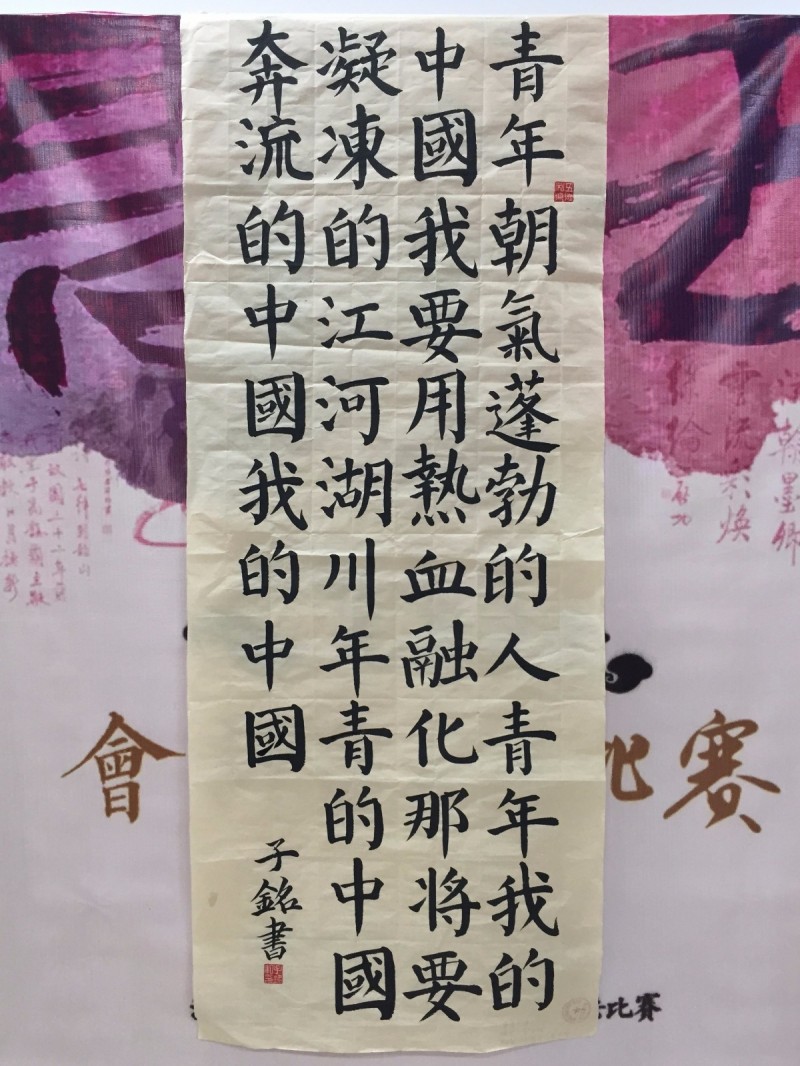 青年朝氣蓬勃的人青年我的
中國我要用熱血融化那将要
凝凍的江河湖川年青的中國
奔流的中國我的中國
子銘書
會
比賽
比賽